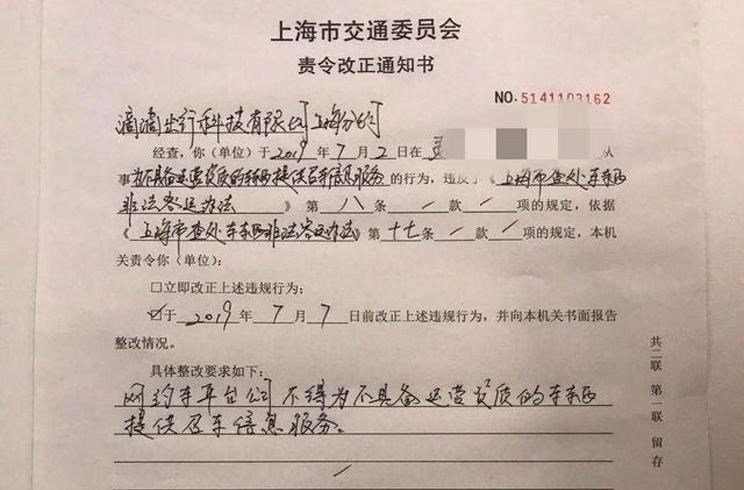 上海市交通委员会
责令改正通知书
NO. 5141103162
滴滴出行科技有限公司上海分公司
经查，你（单位）于 2019 年 7 月 2 日在 从
事为不具备运营资质的车辆提供召车信息服务的行为，违反了《上海市查处车辆
非法客运办法》第 八 条 / 款 / 项的规定，依据
《上海市查处车辆非法客运办法》第 十七 条 / 款 / 项的规定，本机
关责令你（单位）：
□立即改正上述违规行为；
☑于 2019 年 7 月 7 日前改正上述违规行为，并向本机关书面报告
整改情况。
具体整改要求如下：
网约车平台公司不得为不具备运营资质的车辆
提供召车信息服务。
/
共二联 第一联 留存